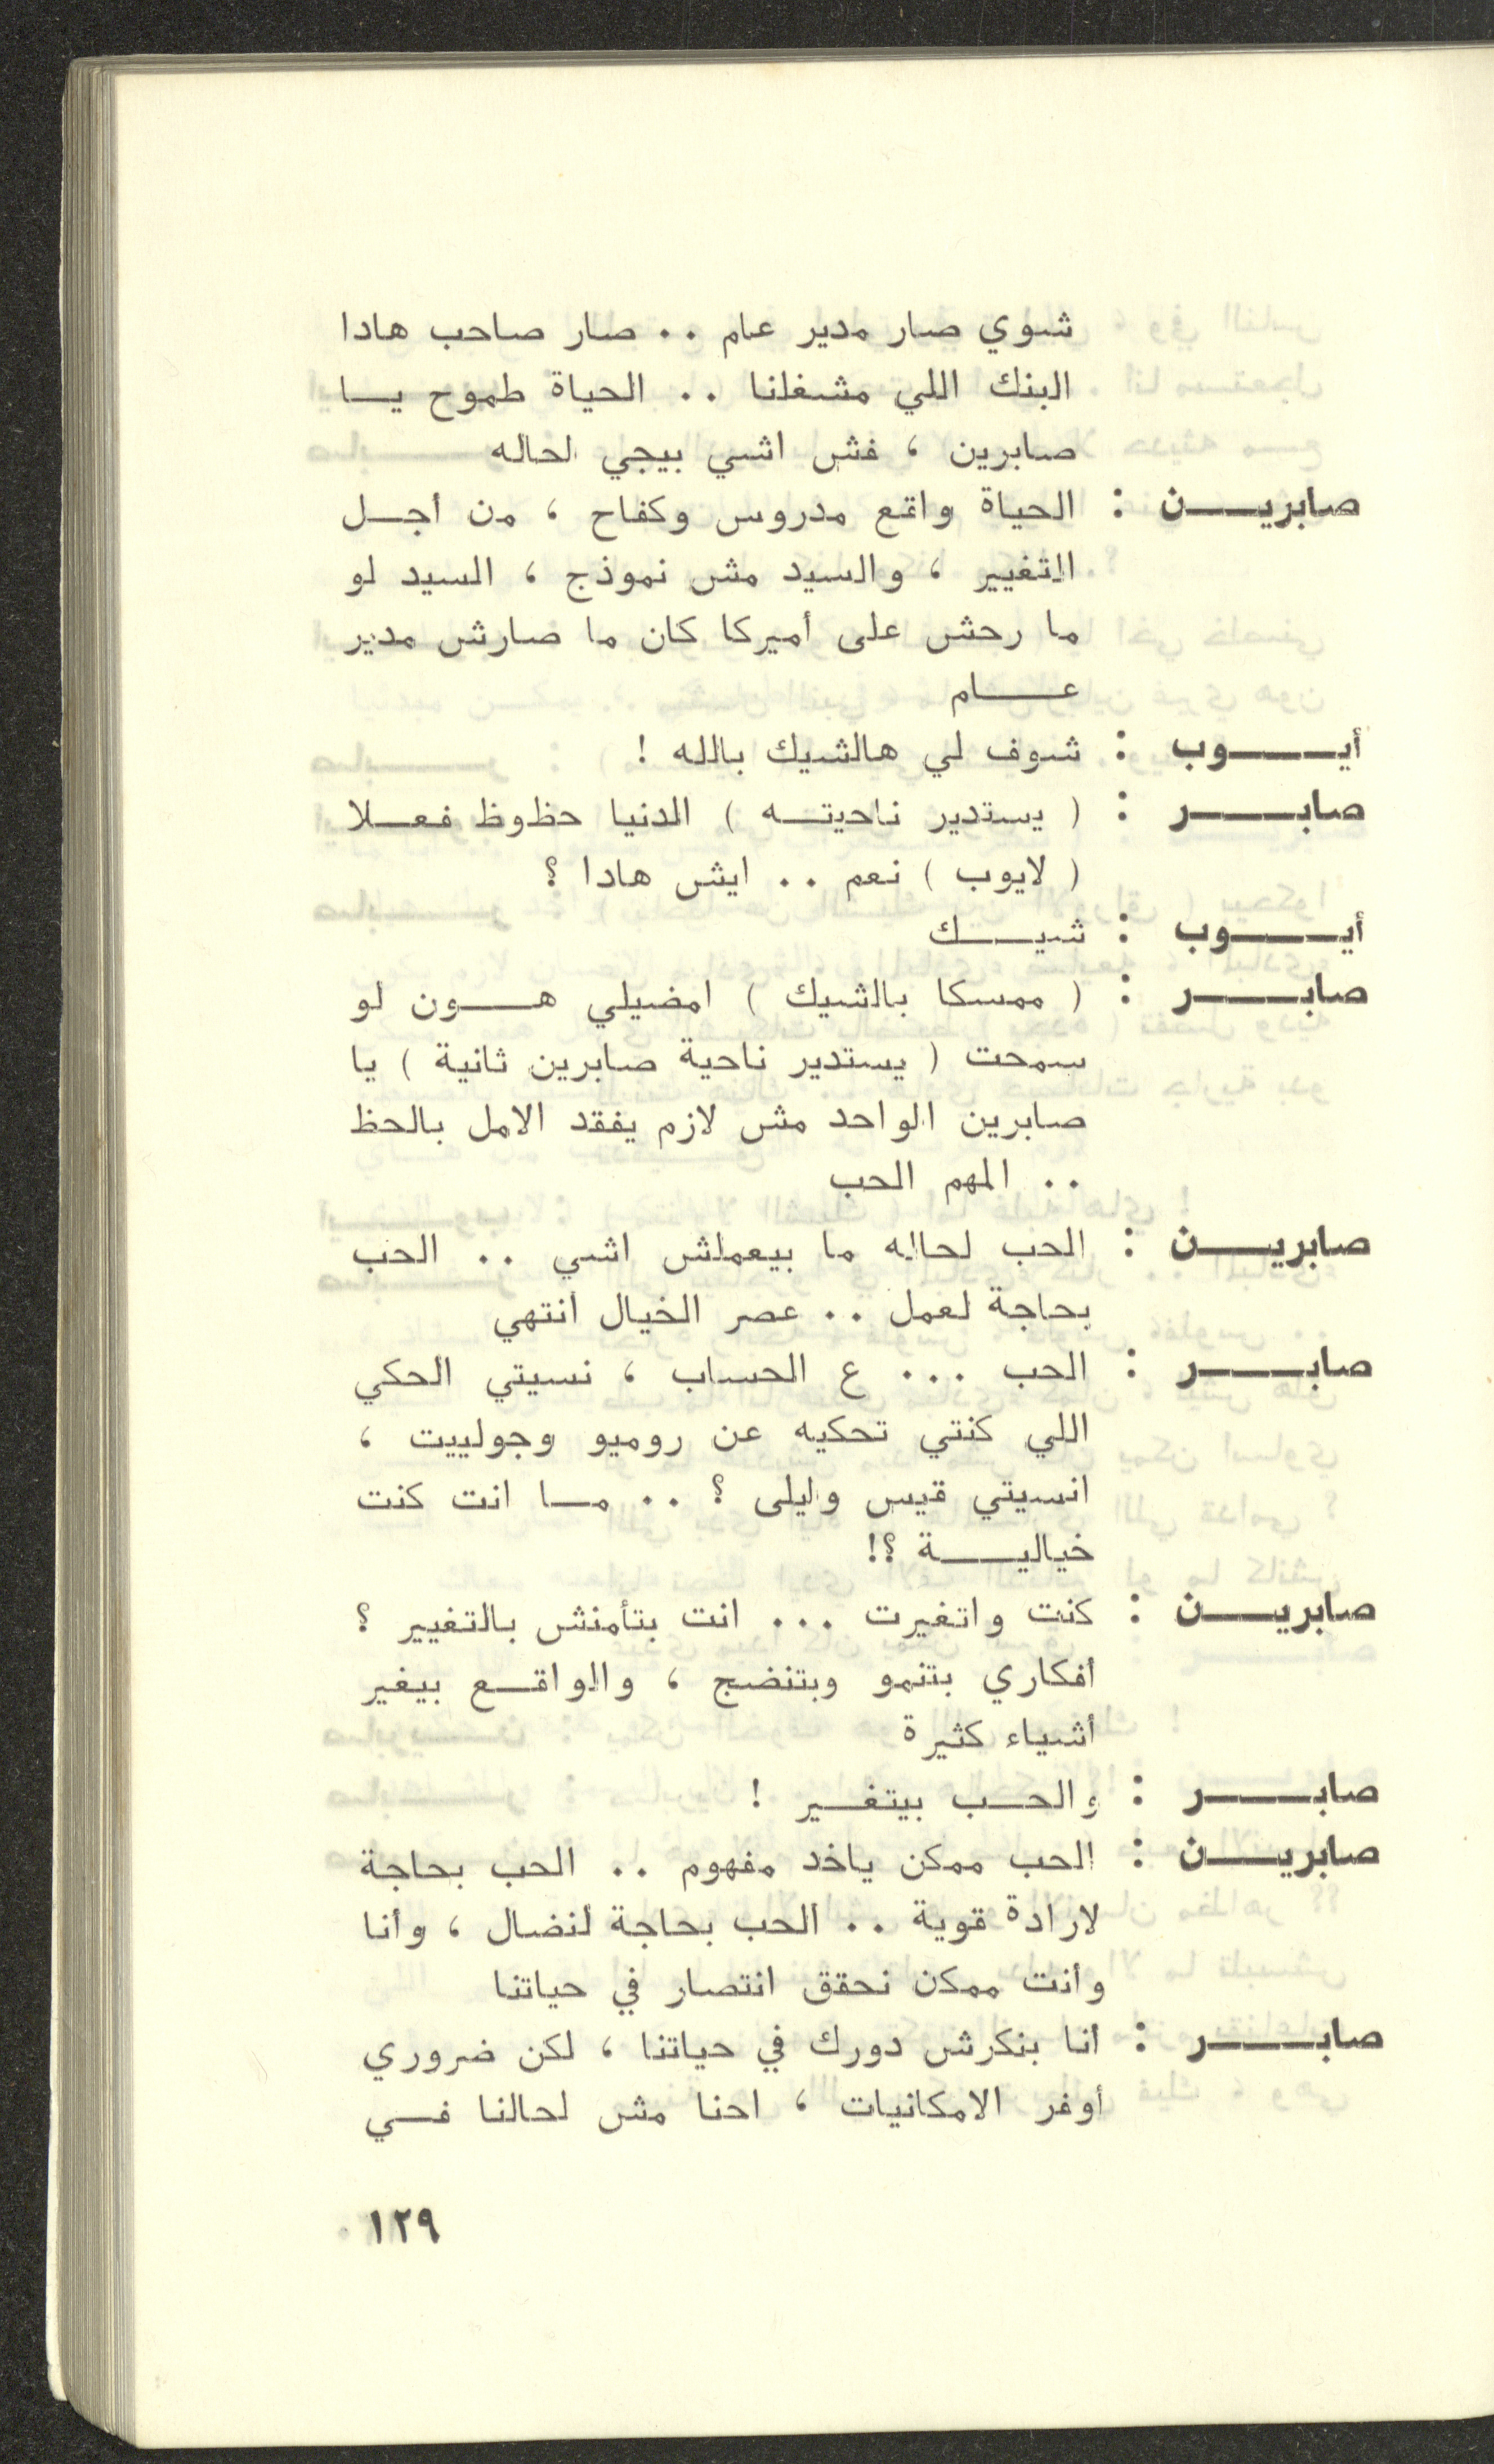 شوي صار مدير عام .. صار صاحب هادا
البنك اللي مشغلنا .. الحياة طموح يا
صابرين ، فش اشي بيجي لحاله
صابرين : الحياة واقع مدروس وكفاح ، من أجل
التغيير ، والسيد مش نموذج ، السيد لو
ما رحش على أميركا كان ما صارش مدير
عام
أيوب : شوف لي هالشيك بالله !
صابر : ( يستدير ناحيته ) الدنيا حظوظ فعلا
( لايوب ) نعم .. ايش هادا ؟
أيوب : شيك
صابر : ( ممسكا بالشيك ) امضيلي هون لو
سمحت ( يستدير ناحية صابرين ثانية ) يا
صابرين الواحد مش لازم يفقد الامل بالحظ
.. المهم الحب
صابرين : الحب لحاله ما بيعملش اشي .. الحب
بحاجة لعمل .. عصر الخيال انتهي
صابر : الحب ... ع الحساب ، نسيتي الحكي
اللي كنتي تحكيه عن روميو وجولييت ،
انسيتي قيس وليلى ؟ .. ما انت كنت
خيالية ؟!
صابرين : كنت واتغيرت ... انت بتأمنش بالتغيير ؟
أفكاري بتنمو وبتنضج ، والواقع بيغير
أشياء كثيرة
صابر : والحب بيتغير !
صابرين : الحب ممكن ياخد مفهوم .. الحب بحاجة
لارادة قوية .. الحب بحاجة لنضال ، وأنا
وأنت ممكن نحقق انتصار في حياتنا
صابر : أنا بنكرش دورك في حياتنا ، لكن ضروري
أوفر الامكانيات ، احنا مش لحالنا في
١٢٩